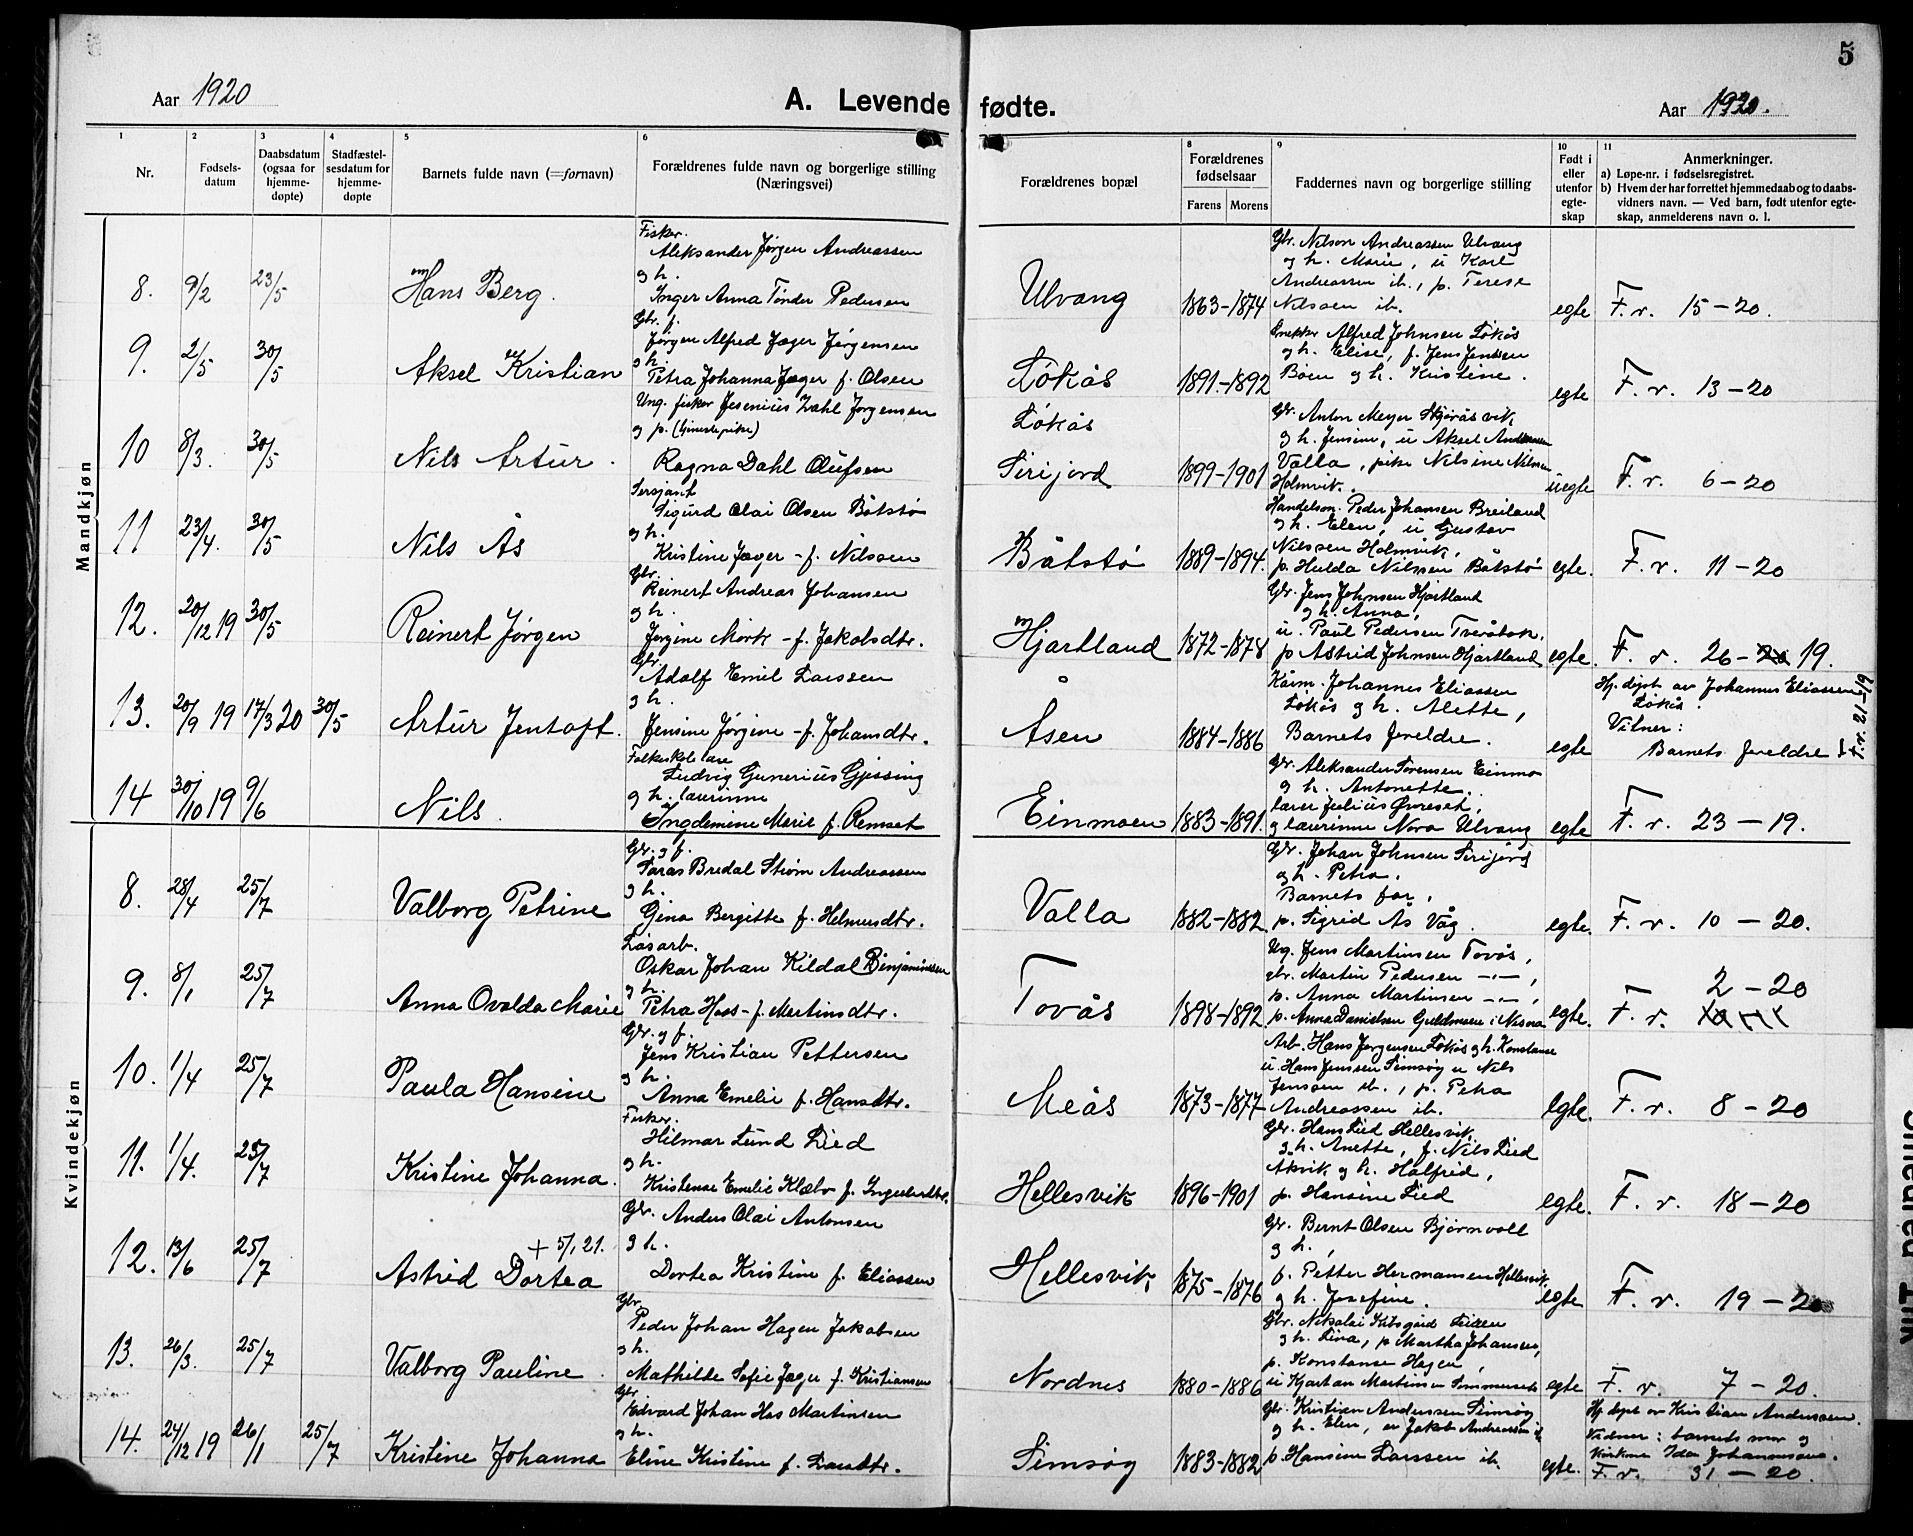 5
Aar 1920
A. Levende fødte.
Aar 1920.
1 2 3 4 5 6 8 9 10 11
Nr.
Fødsels-
datum
Daabsdatum
(ogsaa for
hjemme-
døpte)
Stadfæstel-
sesdatum for
hjemme-
døpte
Barnets fulde navn (=fornavn)
Forældrenes fulde navn og borgerlige stilling
(Næringsvei)
Forældrenes bopæl
Forældrenes
fødselsaar
Farens Morens
Faddernes navn og borgerlige stilling
Født i
eller
utenfor
egte-
skap
Anmerkninger.
a) Løpe-nr. i fødselsregistret.
b) Hvem der har forrettet hjemmedaab og to daabs-
vidners navn. — Ved barn, født utenfor egte-
skap, anmelderens navn o. l.
Mandkjøn
8. 9/2 23/5 Hans Berg.
Fisker.
Aleksander Jørgen Andreassen
og h.
Inger Anna Tønder Pedersen
Ulvang 1863-1874
Gbr. Nilson Andreassen Ulvang
og h. Marie, u Karl
Andreassen ib., p. Terese
Nilssen ib.
egte F. r. 15-20.
9. 2/5 30/5 Aksel Kristian
Gbr. f.
Jørgen Alfred Jæger Jørgensen
og h.
Petra Johanna Jæger f. Olsen
Løkås 1891-1892
Snekker Alfred Johnsen Løkås
og h. Elise, f. Jens Jentsen
Båen og h. Kristine.
egte F. r. 13-20
10 8/3. 30/5 Nils Artur.
Ung. fisker Jesenius Zahl Jørgensen
og p. (tjenestepike)
Ragna Dahl Olufsen
Løkås
Sirijord 1899-1901
Gbr. Anton Meyer
og h. Jensine, u Aksel
Valla, pike Nilsine Nilsen
Holmvik.
uegte F. r. 6-20
11 23/4. 30/5 Nils Ås
Sersjant
Sigurd Olai Olsen Båtstø
og h.
Kristine Jæger - f. Nilssen
Båtstø 1889-1894.
Handelsm. Peder Johansen Breiland
og h. Elen, u Gustav
Nilssen Holmvik,
p. Hulda Nilssen Båtstø
egte. F. r. 11-20
12. 20/12 19 30/5 Reinert Jørgen
Gbr.
Reinert Andreas Johansen
og h.
Jørgine Mørk - f. Jakobsdtr.
Hjartland 1872-1878
Gbr. Jens Johnsen Hjartland
og h. Anna,
u. Paul Pedersen Tveråbak.
p Astrid Johnsen Hjartland
egte. F. r. 26-20 19.
13. 20/9 19 17/3 20 30/5 Artur Jentoft.
Gbr.
Adolf Emil Larssen
og h.
Jensine Jørgine - f. Johansdtr.
Åsen 1884-1886
Kårm. Johannes Eliassen
Løkås og h. Alette,
Barnets foreldre.
egte
Hj. døpt av Johannes Eliassen
Løkås.
Vitner:
Barnets foreldre
F. r. 21-19
14 30/10 19 9/6 Nils.
Folkeskolelære
Ludvig Gunerius Gjessing
og h. lærerinne
Ingdemine Marie f. Remset
Einmoen 1883-1891.
Gbr. Aleksander Sørensen Einmo
og h. Antonette.
lærer Julius Øvreset,
og lærerinne Nora Ulvang
egte F. r. 23-19.
Kvindekjøn
8. 28/4 25/7 Valborg Petrine
Gbr. og f.
Saras Bredal Strøm Andreassen
og h.
Gina Bergitte f. Helmersdtr.
Valla 1882-1882.
Gbr. Johan Johnsen Sirijord
og h. Petra.
Barnets far,
p. Sigrid Ås Våg.
egte. F. r. 10-20.
9. 8/1 25/7 Anna Ovalda Marie
Løsarb.
Oskar Johan Kildal Benjaminsen
og h.
Petra Haas - f. Martinsdtr.
Tovås 1898-1892
Ug. Jens Martinsen Tovås,
gbr. Martin Pedersen -"-,
p. Anna Martinsen -"-,
p. Anna Danielsen Guldmoen i Nesna
egte. F. r. 2-20
10. 1/4 25/7 Paula Hansine
Gbr. og f.
Jens Kristian Pettersen
og h.
Anna Emelie f. Hansdtr.
Meås 1873-1877
Arb. Hans Jørgensen Løkås og h. Konstanse
u. Hans Jenssen Simsøy u Nils
Jenssen ib., p. Petra
Andreassen ib.
egte. F. r. 8-20
11. 1/4. 25/7 Kristine Johanna.
Fisker.
Hilmar Lund Lied
og h.
Kristense Emelie Klæbo f.
Hellesvik 1896-1901
Gbr. Hans Lied Hellesvik
og h. Anette, f. Nils Lied
Akvik og h. Halfrid,
p. Hansine Lied
egte. F. r. 18-20
12. 13/6 25/7 Astrid Dortea + 5/1 21.
Gbr. Anders Olai Antonsen
og h.
Dortea Kristine f. Eliassen
Hellesvik 1875-1876
Gbr. Bernt Olsen Bjørnvoll
og h.,
f. Petter Hermansen Hellesvik
og h. Josefine.
egte F. r. 19-20
13. 26/3. 25/7 Valborg Pauline.
Gbr
Peder Johan Hagen Jakobsen
og h.
Mathilde Sofie Jæger f. Kristiansen
Nordnes 1880-1886
Gbr. Nikolai
og h. Lina, p Martha Johansen,
p. Konstanse Hagen,
u Kjartan Martinsen
egte F. r. 7-20.
14. 24/12 19 26/1 25/7 Kristine Johanna
Gbr
Edvard Johan Has Martinsen
og h.
Eline Kristine f. Larsdtr.
Simsøy 1883-1882
Gbr. Kristian Anderssen Simsøy
og h. Elen, u Jakob Andreassen ib
p. Hansine Larssen ib.
egte.
Hj. døpt av Kristian Anderssen.
Vidner: barnets mor og
Ida Johannessen.
F. r. 31-20.